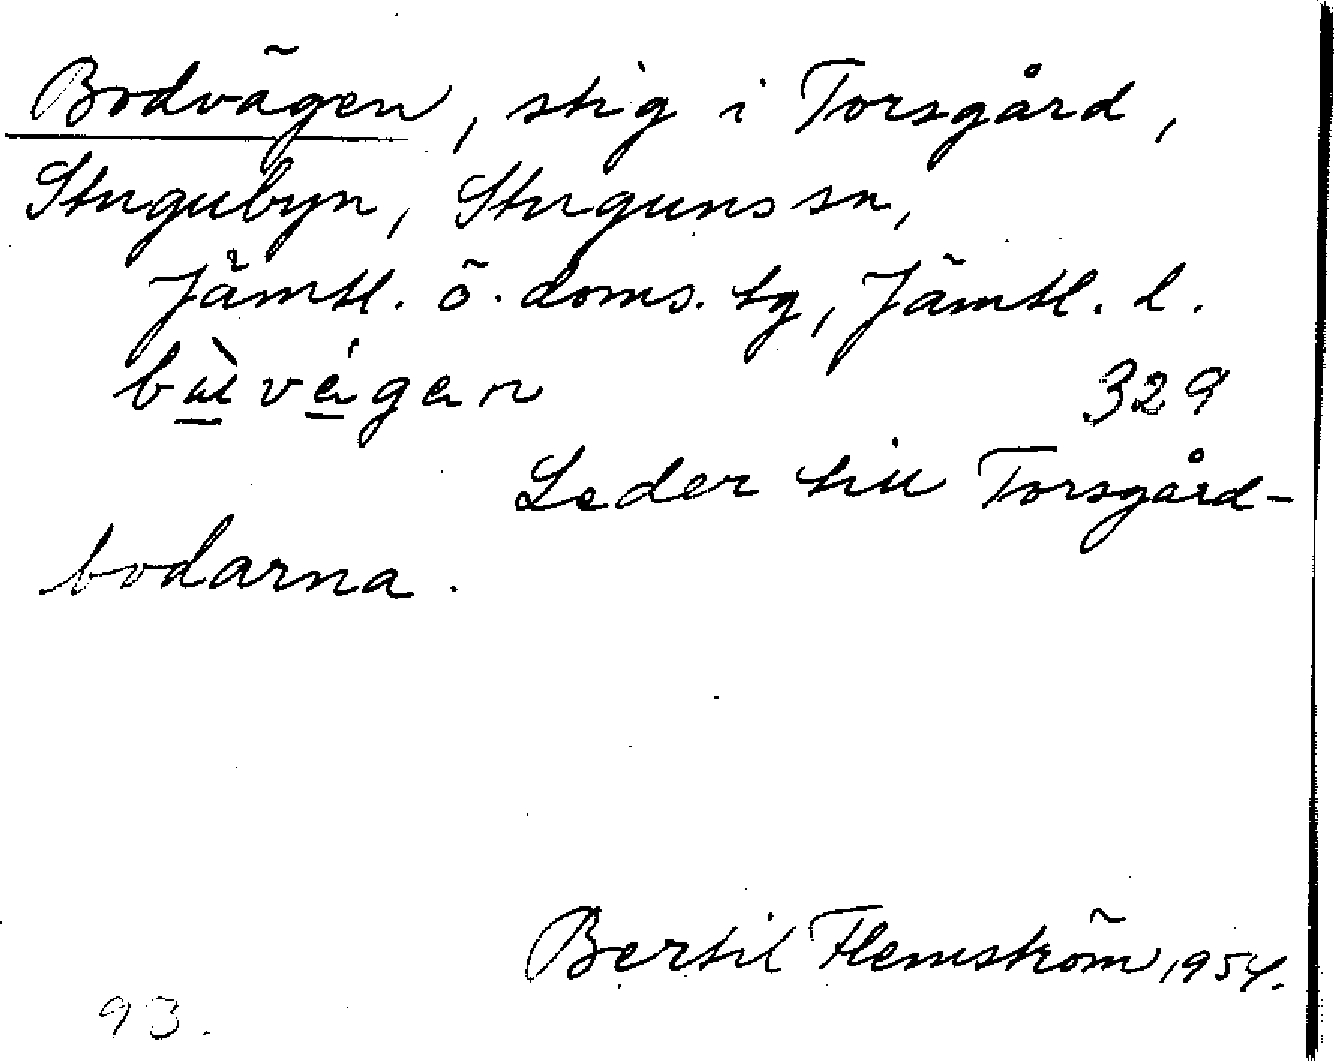 Bodvägen, stig i Torsgård,
Stugubyn, Stuguns sn,
Jämtl. ö. doms. tg, Jämtl. l.
329
Leder till Torsgård-
bodarna.
Bertil Flemström 1954.
93.